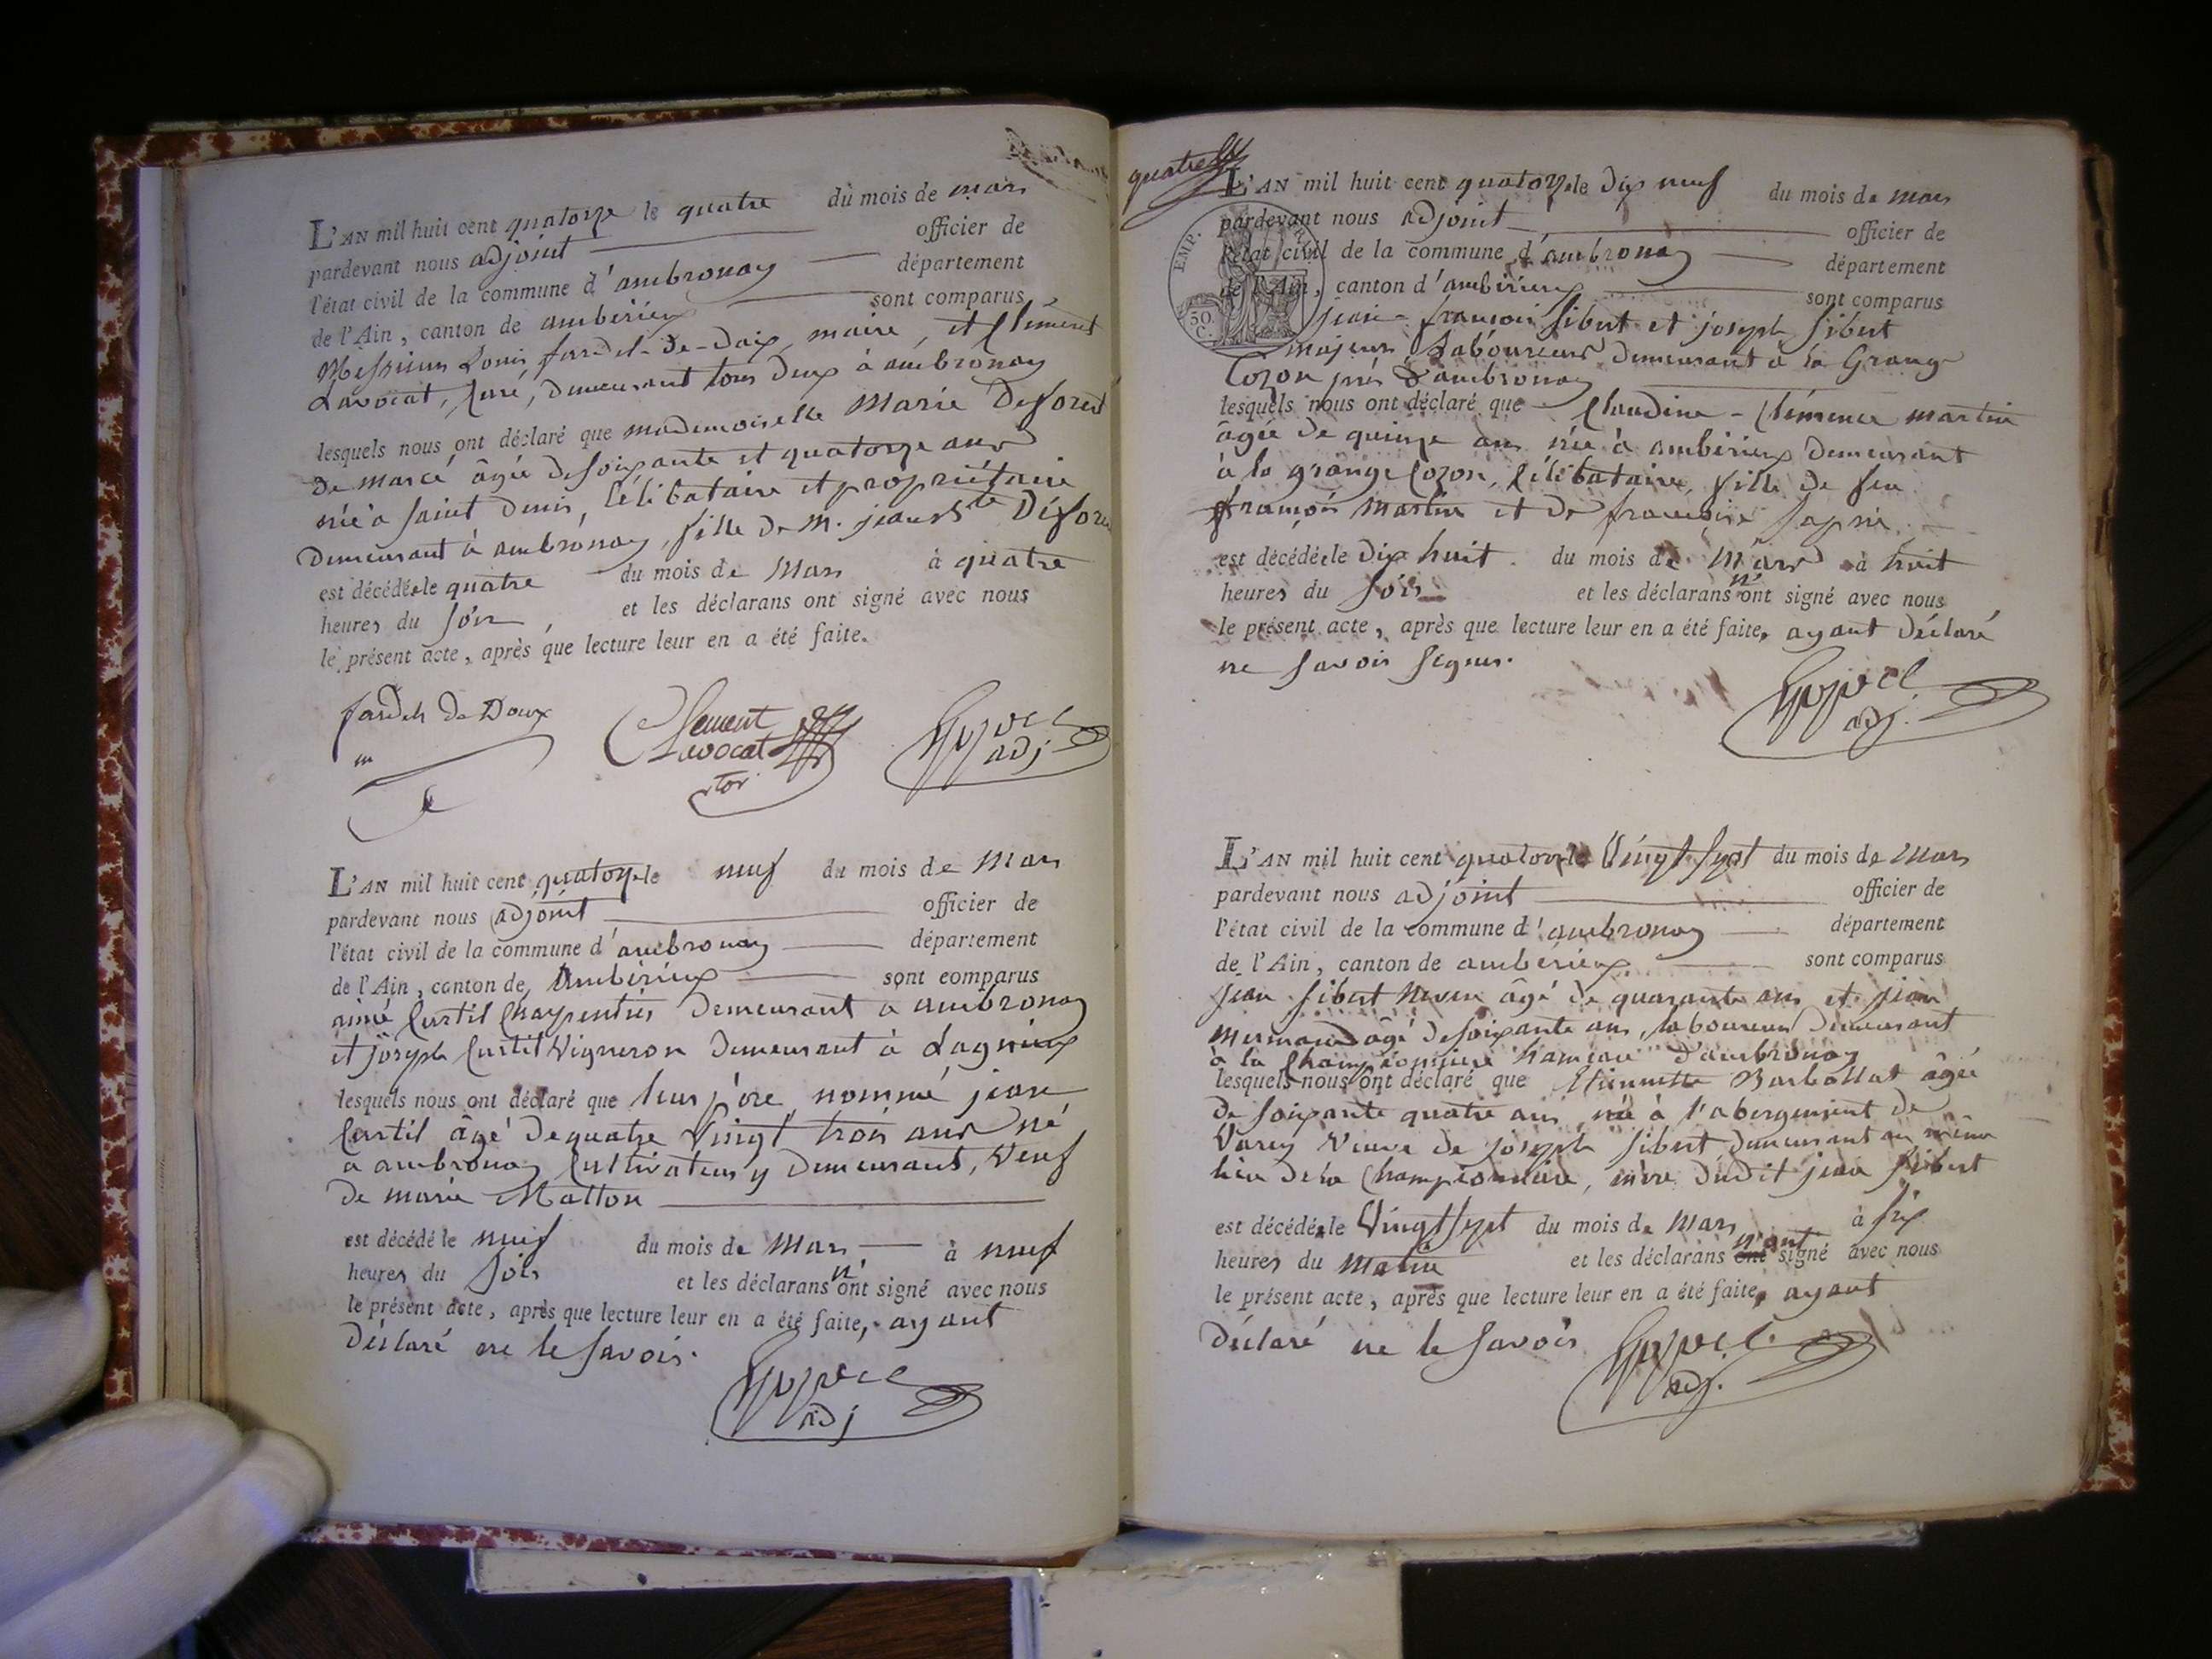 L'AN mil huit cent quatorze le quatre du mois de mars
pardevant nous adjoint officier de
l'état civil de la commune d'ambronay département
de l'Ain, canton de ambérieux sont comparus
Messieurs Louis fardel-de-Daix, maire, et Clément
Lavocat, Curé, demeurant tous deux à ambronay
lesquels nous ont déclaré que mademoiselle Marie Deforest
de marcé âgée de soixante et quatorze ans
née à saint denis, Célibataire et propriétaire
demeurant à ambronay, fille de M. jean Bte
est décédée le quatre du mois de Mars à quatre
heures du soir, et les déclarans ont signé avec nous
le présent acte, après que lecture leur en a été faite.
fardel de Daix
Clement
Lavocat
adj.
L'AN mil huit cent quatorze le neuf du mois de Mars
pardevant nous adjoint officier de
l'état civil de la commune d'ambronay département
de l'Ain, canton de, Ambérieux sont comparus
aimé Curtil Charpentier demeurant a ambronay
et joseph Curtil Vigneron demeurant à Lagnieux
lesquels nous ont déclaré que leur père, nommé jean
Curtil âgé de quatre Vingt trois ans né
a ambronay Cultivateur y demeurant, Veuf
de marie Matton
est décédé le neuf du mois de Mars à neuf
heures du soir et les déclarans n'ont signé avec nous
le présent acte, après que lecture leur en a été faite, ayant
déclaré ne le savoir.
adj
quatre
EMP.
50.
C.
L'AN mil huit cent quatorze le dix neuf du mois de mars
pardevant nous adjoint officier de
l'état civil de la commune d'ambronay département
de l'Ain, canton d'ambérieux sont comparus
jean-francois sibert et joseph sibert
majeurs, Laboureurs demeurant à la Grange
Cozon près d'ambronay
lesquels nous ont déclaré que Claudine-Clémence martin
âgée de quinze ans née à ambérieux demeurant
à la grange Cozon, Célibataire, fille de feu
françois Martin et de francoise
est décédée le dix huit du mois de Mars à huit
heures du soir et les déclarans n'ont signé avec nous
le présent acte, après que lecture leur en a été faite, ayant déclaré
ne savoir signer.
adj.
L'AN mil huit cent quatorze le Vingt sept du mois de Mars
pardevant nous adjoint officier de
l'état civil de la commune d'ambronay département
de l'Ain, canton de ambérieux sont comparus
jean sibert âgé de quarante ans et jean
mermand âgé de soixante ans, laboureurs demeurant
à la Championnière hameau d'ambronay
lesquels nous ont déclaré que Etiennette Barbollat âgée
de soixante quatre ans, née à l'abergement de
Varey Veuve de joseph sibert demeurant au même
lieu de la Championnière, mère dudit jean sibert
est décédée le Vingt sept du mois de Mars à six
heures du Matin et les déclarans n'ont signé avec nous
le présent acte, après que lecture leur en a été faite, ayant
déclaré ne le savoir
adj.